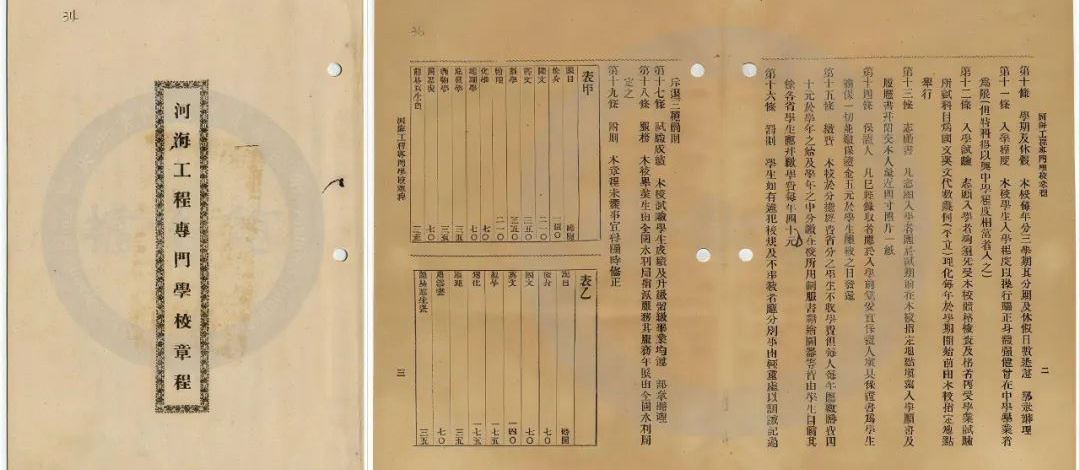 34
河海工程專門學校章程
36
河海工程專門學校章程
二
第十條 學期及休假 本校每年分三學期其分期及休假日數悉遵 部章辦理
第十一條 入學程度 本校學生入學程度以操行端正身體強健曾在中學畢業者
爲限(但特科得以與中學程度相當者入之)
第十二條 入學試驗 志願入學者均須先受本校體格檢查及格者再受學業試驗
所試科目爲國文英文代數幾何(平立)理化每年於學期開始前由本校指定地點
舉行
第十三條 志願書 凡志願入學者應於試期前在本校指定地點填寫入學願書及
履歷書並附交本人最近四寸照片一紙
第十四條 保證人 凡已經錄取者應於入學前覓妥實保證人填具保證書爲學生
擔保一切並繳保證金五元於學生離校之日發還
第十五條 繳費 本校於分擔經費省分之學生不取學費但每人每年應繳膳費四
十元於學年之始及學年之中分繳在校所用制服書籍繪圖器等皆由學生自備其
餘各省學生應並繳學費每年四十元
第十六條 罰則 學生如有違犯校規及不率教者應分別事由輕重處以訓誡記過
斥退三種罰則
第十七條 試驗成績 本校試驗學生成績及升級留級畢業均遵 部章辦理
第十八條 服務 本校畢業生由全國水利局指派服務其服務年限由全國水利局
定之
第十九條 附則 本章程未盡事宜得隨時修正
表甲
科目 時間
修身
國文 二一〇
英文 三五〇
數學
物理 二一〇
化學 七〇
地質學 七〇
三五
三五
七〇
三五
表乙
科目 時間
修身 七〇
國文 七〇
英文 一四〇
數學 一七五
理化 一七五
三五
七〇
三五
河海工程專門學校章程
三